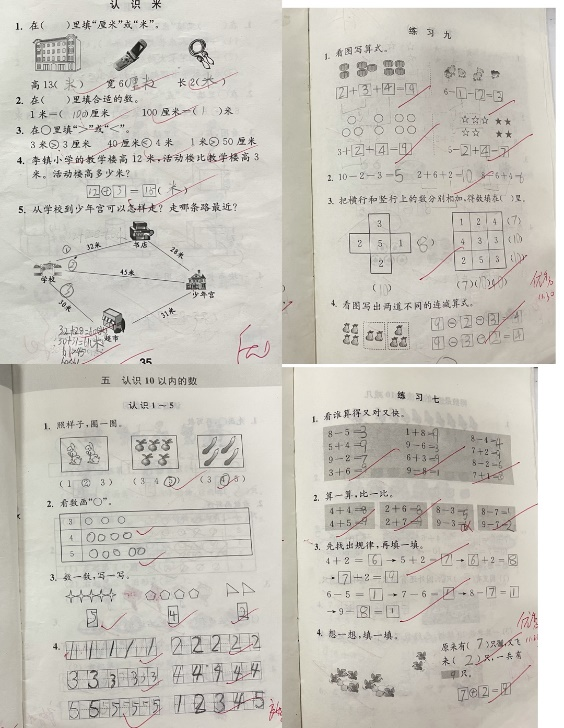 认 识 米
1. 在（ ）里填“厘米”或“米”。
高 13（米） 宽 6（厘米） 长 2（米）
2. 在（ ）里填合适的数。
1 米=（100）厘米 100 厘米=（1）米
3. 在○里填“>”或“<”。
3 米>3 厘米 40 厘米<4 米 1 米>50 厘米
4. 李镇小学的教学楼高 12 米，活动楼比教学楼高 3
米。活动楼高多少米？
12+3=15（米）
5. 从学校到少年宫可以怎样走？走哪条路最近？
① 32米 书店 28米
②
学校 45米
少年宫
③
30米 超市 31米
35
练 习 九
1. 看图写算式。
2+3+4=9 6-1-2=3
3+2+4=9 5-
2. 10-2-3=5 2+6+2=10
3. 把横行和竖行上的数分别相加，得数填在（ ）里。
3
2 5 1 （8）
2
（10）
1 2 4 （7）
4 3 3 （10）
2 5 3 （10）
4. 看图写出两道不同的连减算式。
9-2-3=4
9-3-2=4
五 认识 10 以内的数
认识 1～5
1. 照样子，圈一圈。
（1 ② 3） （3 4 ⑤） （3 ④ 5）
2. 看数画“○”。
3 ○ ○ ○
4 ○○○○
5 ○○○○○
3. 数一数，写一写。
5 4 2
4. 1 1 1 1 1 2 2 2 2 2
3 3 3 3 3 4 4 4 4 4
5 5 5 5 5 1 2 3 4 5
练 习 七
1. 看谁算得又对又快。
8-5=3 1+8=9 8-4=4
5+4=9 9-6=3 7+2=9
9-2=7 6+3=9 8-2=6
3+6=9 9-8=1
2. 算一算，比一比。
4+4=8 2+6=8 8-3=5 8-7=1
4+5=9 2+7=9 9-3=6 9-7=2
3. 先找出规律，再填一填。
4+2=6→5+2=7→6+2=8
→7+2=9
6-5=1→7-6=1→8-7=1
→9-8=1
4. 想一想，填一填。
原来有（7）只，又飞
来（2）只，一共有
9只。
7+2=9